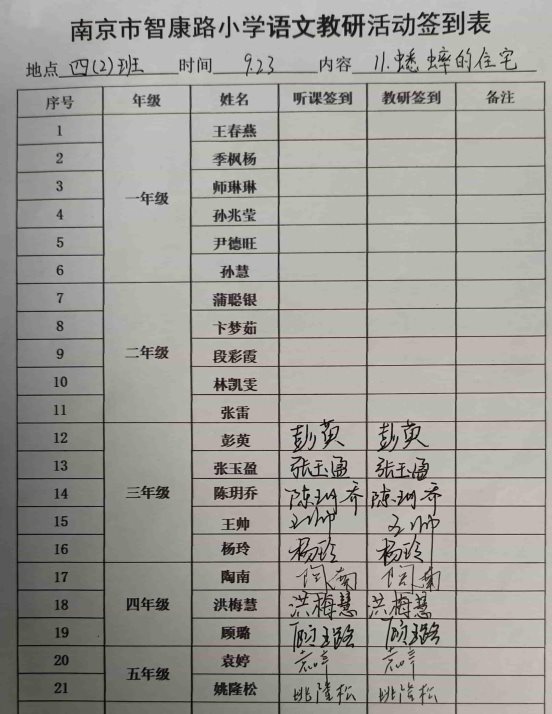 南京市智康路小学语文教研活动签到表
地点 四(2)班 时间 9.23 内容 11.蟋蟀的住宅
序号 年级 姓名 听课签到 教研签到 备注
1 王春燕
2 季枫杨
3 师琳琳
一年级
4 孙兆莹
5 尹德旺
6 孙慧
7 蒲聪银
8 卞梦茹
9 二年级 段彩霞
10 林凯雯
11 张雷
12 彭英 彭英 彭英
13 张玉盈 张玉盈 张玉盈
14 三年级 陈玥乔 陈玥乔 陈玥乔
15 王帅 王帅 王帅
16 杨玲 杨玲 杨玲
17 陶南 陶南 陶南
18 四年级 洪梅慧 洪梅慧 洪梅慧
19 顾璐 顾璐 顾璐
20 袁婷 袁婷 袁婷
五年级
21 姚隆松 姚隆松 姚隆松